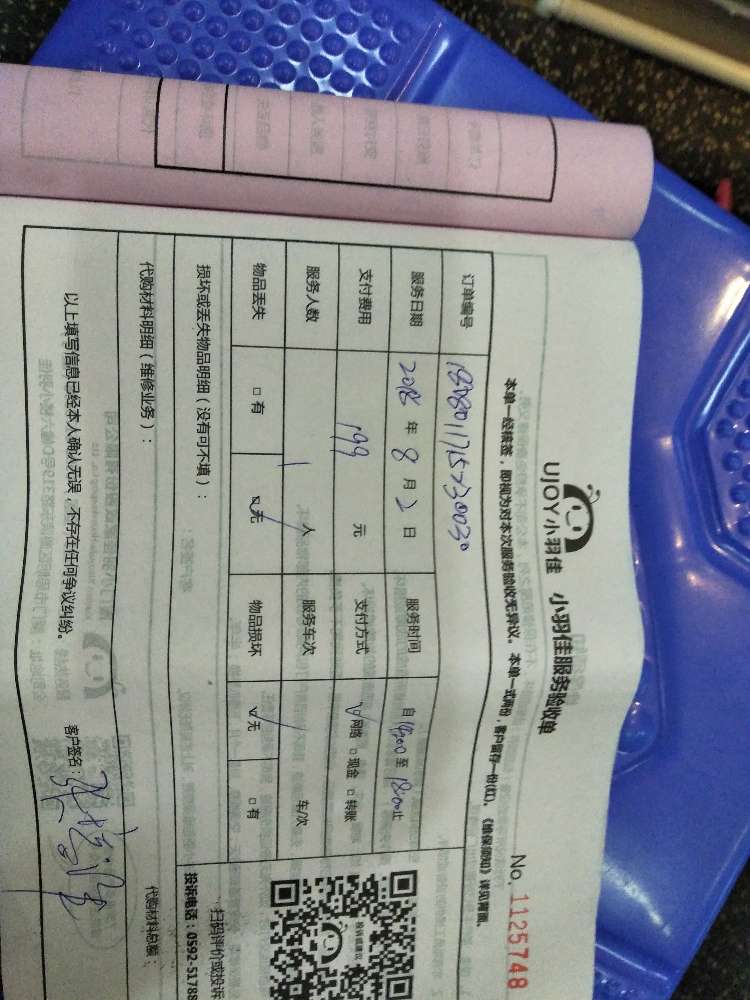 UJOY小羽佳 小羽佳服务验收单
No. 1125748
本单一经核签,即视为对本次服务验收无异议。本单一式两份,客户留存一份(红),《维保须知》详见背面。
订单编号
服务日期 2018 年 8 月 2 日 服务时间 自 14:00 至 18:00 止
支付费用 199 元 支付方式 ☑网络 □现金 □转账
服务人数 1 人 服务车次 车/次
物品丢失 □有 ☑无 物品损坏 ☑无 □有
损坏或丢失物品明细(没有可不填):
扫码评价或投诉
投诉建议
投诉电话:0592-51788
代购材料明细(维修业务):
代购材料总额:
以上填写信息已经本人确认无误,不存在任何争议纠纷。
客户签名: